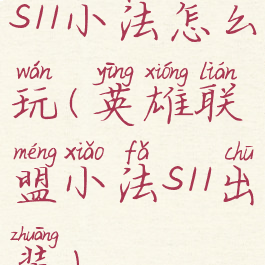 S11小法怎么
wán yīng xióng lián
玩(英雄联
méng xiǎo fǎ chū
盟小法S11出
zhuāng
装)